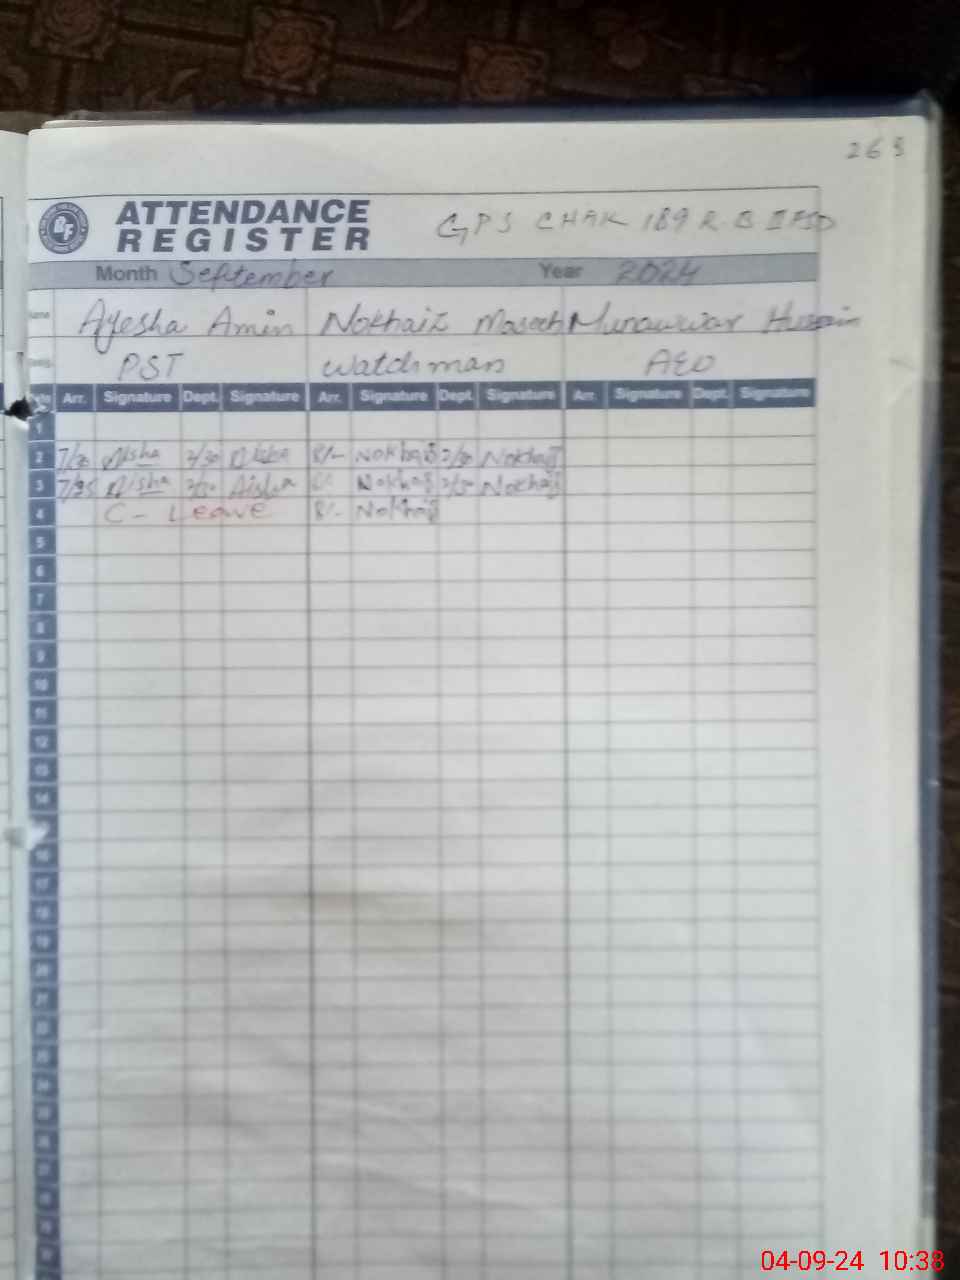 263
ATTENDANCE
REGISTER
GPS CHAK 189 R.B II FSD
Month September Year 2024
Name Ayesha Amin Nokhaiz Maseeh Munawwar Hussain
PST Watchman AEO
Date Arr. Signature Dept. Signature Arr. Signature Dept. Signature Arr. Signature Dept. Signature
1
2 7/30 Aisha 2/30 Aisha 8/- Nokhaiz 2/30 Nokhaiz
3 7/25 Aisha 2/30 Aisha Nokhaiz 2/30 Nokhaiz
4 C - Leave 8/- Nokhaiz
5
6
7
8
9
10
11
12
13
14
16
17
18
19
20
21
22
23
24
25
26
27
28
04-09-24 10:38